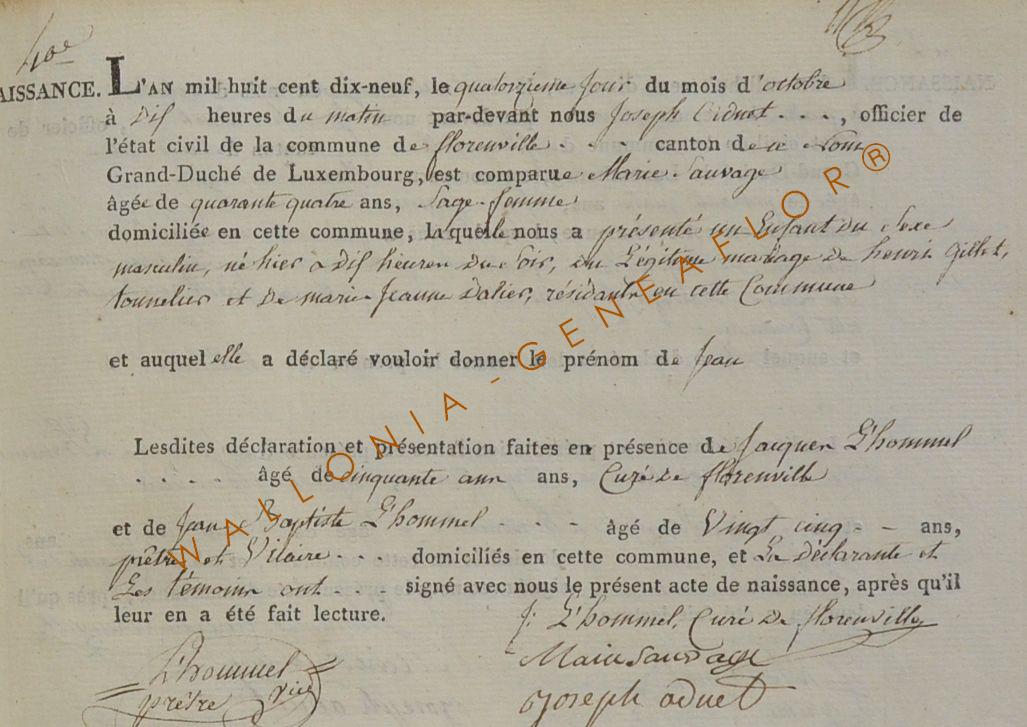 40e
NAISSANCE. L'AN mil huit cent dix-neuf, le quatorzieme jour du mois d'octobre
à dix heures du matin par-devant nous Joseph Oduet - - -, officier de
l'état civil de la commune de florenville - - - canton de ce Nom
Grand-Duché de Luxembourg, est comparue Marie Sauvage
âgée de quarante quatre ans, Sage-femme
domiciliée en cette commune, laquelle nous a présenté un Enfant du Sexe
masculin, né hier à dix heures du Soir, du Légitime mariage de henri Gillet,
tonnelier et de marie Jeanne Dalier, résidants en cette Commune
et auquel elle a déclaré vouloir donner le prénom de Jean
Lesdites déclaration et présentation faites en présence de Jacques L'hommel
- - - - âgé de cinquante ans ans, Curé de florenville
et de Jean Baptiste L'hommel - - - âgé de Vingt cinq - - ans,
prêtre et Vicaire - - - domiciliés en cette commune, et La déclarante et
Les témoins ont - - - signé avec nous le présent acte de naissance, après qu'il
leur en a été fait lecture.
J. L'hommel, Curé de florenville
L'hommel
prêtre vic
Marie Sauvage
Joseph oduet
WALLONIA-GENEAFLOR®